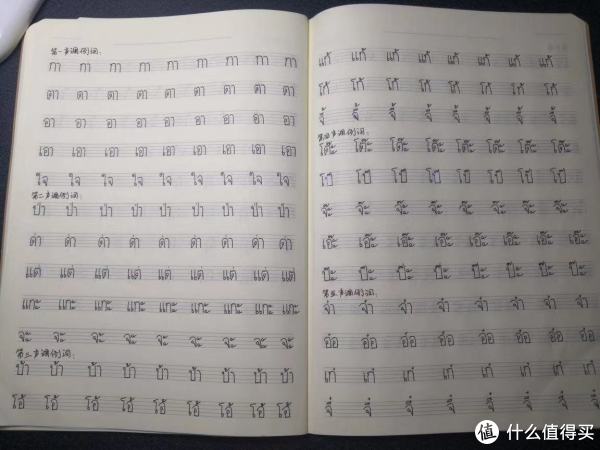 第一声调例词:
กา กา กา กา กา กา กา กา
ตา ตา ตา ตา ตา ตา ตา ตา ตา
อา อา อา อา อา อา อา อา อา
เอา เอา เอา เอา เอา เอา เอา เอา เอา
ใจ ใจ ใจ ใจ ใจ ใจ ใจ ใจ ใจ
第二声调例词:
ป่า ป่า ป่า ป่า ป่า ป่า ป่า ป่า ป่า
ด่า ด่า ด่า ด่า ด่า ด่า ด่า ด่า ด่า
แต่ แต่ แต่ แต่ แต่ แต่ แต่ แต่ แต่
แกะ แกะ แกะ แกะ แกะ แกะ แกะ แกะ แกะ
จะ จะ จะ จะ จะ จะ จะ จะ จะ
第三声调例词:
บ้า บ้า บ้า บ้า บ้า บ้า บ้า บ้า บ้า
โอ้ โอ้ โอ้ โอ้ โอ้ โอ้ โอ้ โอ้ โอ้
แก้ แก้ แก้ แก้ แก้ แก้ แก้ แก้
โก้ โก้ โก้ โก้ โก้ โก้ โก้ โก้
จี้ จี้ จี้ จี้ จี้ จี้ จี้ จี้
第四声调例词:
โต๊ะ โต๊ะ โต๊ะ โต๊ะ โต๊ะ โต๊ะ โต๊ะ โต๊ะ
โป๊ โป๊ โป๊ โป๊ โป๊ โป๊ โป๊ โป๊
จ๊ะ จ๊ะ จ๊ะ จ๊ะ จ๊ะ จ๊ะ จ๊ะ จ๊ะ
เอ๊ะ เอ๊ะ เอ๊ะ เอ๊ะ เอ๊ะ เอ๊ะ เอ๊ะ เอ๊ะ
ป๊ะ ป๊ะ ป๊ะ ป๊ะ ป๊ะ ป๊ะ ป๊ะ ป๊ะ
第五声调例词:
จ๋า จ๋า จ๋า จ๋า จ๋า จ๋า จ๋า จ๋า
อ๋อ อ๋อ อ๋อ อ๋อ อ๋อ อ๋อ อ๋อ อ๋อ
เก๋ เก๋ เก๋ เก๋ เก๋ เก๋ เก๋ เก๋
จี๋ จี๋ จี๋ จี๋ จี๋ จี๋ จี๋ จี๋
值 什么值得买